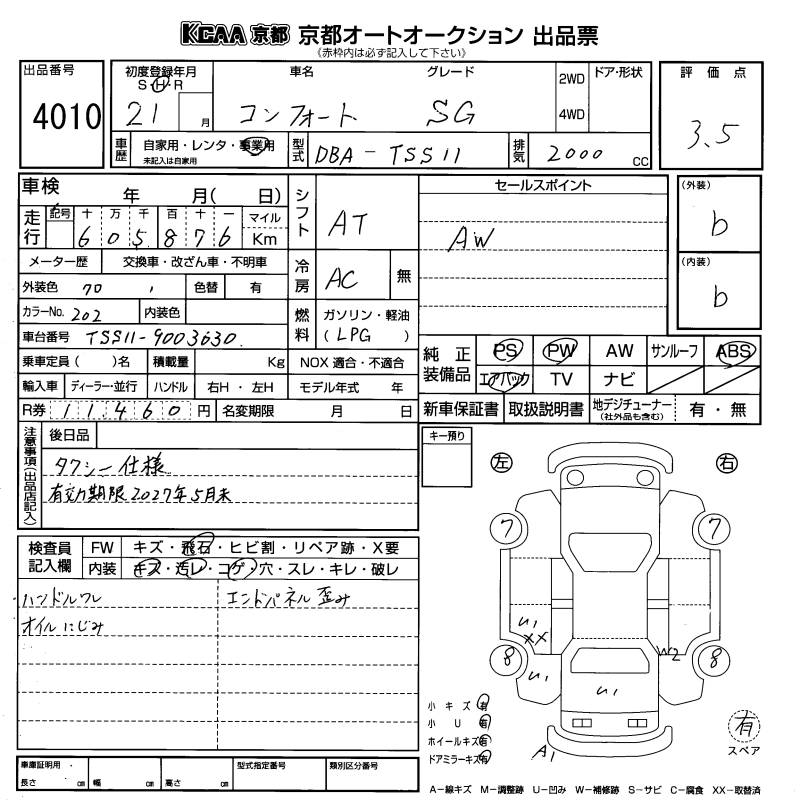 KCAA 京都 京都オートオークション 出品票
《赤枠内は必ず記入して下さい》
出品番号 4010
初度登録年月 S・H・R 21 月
車名 コンフォート
グレード SG
2WD 4WD
ドア・形状
評価点 3.5
車歴 自家用・レンタ・事業用 未記入は自家用
型式 DBA-TSS11
排気 2000 CC
車検 年 月( 日)
シフト AT
セールスポイント
AW
(外装) b
(内装) b
走行 記号 十 万 千 百 十 一 マイル
6 0 5 8 7 6 Km
メーター歴 交換車・改ざん車・不明車
冷房 AC 無
外装色 70 , 色替 有
カラーNo. 202 内装色
燃料 ガソリン・軽油 (LPG )
車台番号 TSS11-9003630
乗車定員( )名 積載量 Kg NOX 適合・不適合
輸入車 ディーラー・並行 ハンドル 右H・左H モデル年式 年
R券 11460 円 名変期限 月 日
純正装備品 PS PW AW サンルーフ ABS
エアバック TV ナビ
新車保証書 取扱説明書 地デジチューナー (社外品も含む) 有・無
注意事項(出品店記入) 後日品
タクシー仕様
有効期限2027年5月末
キー預り
左 右
検査員記入欄 FW キズ・飛石・ヒビ割・リペア跡・X要
内装 キズ・汚レ・コゲ・穴・スレ・キレ・破レ
ハンドルワレ エンドパネル歪み
オイルにじみ
7 7
U1
XX
8 8
U1 W2
U1
A1
小キズ 有
小U 有
ホイールキズ 有
ドアミラーキズ 有
有 スペア
車庫証明用 長さ cm 幅 cm 高さ cm
型式指定番号 類別区分番号
A-線キズ M-調整跡 U-凹み W-補修跡 S-サビ C-腐食 XX-取替済